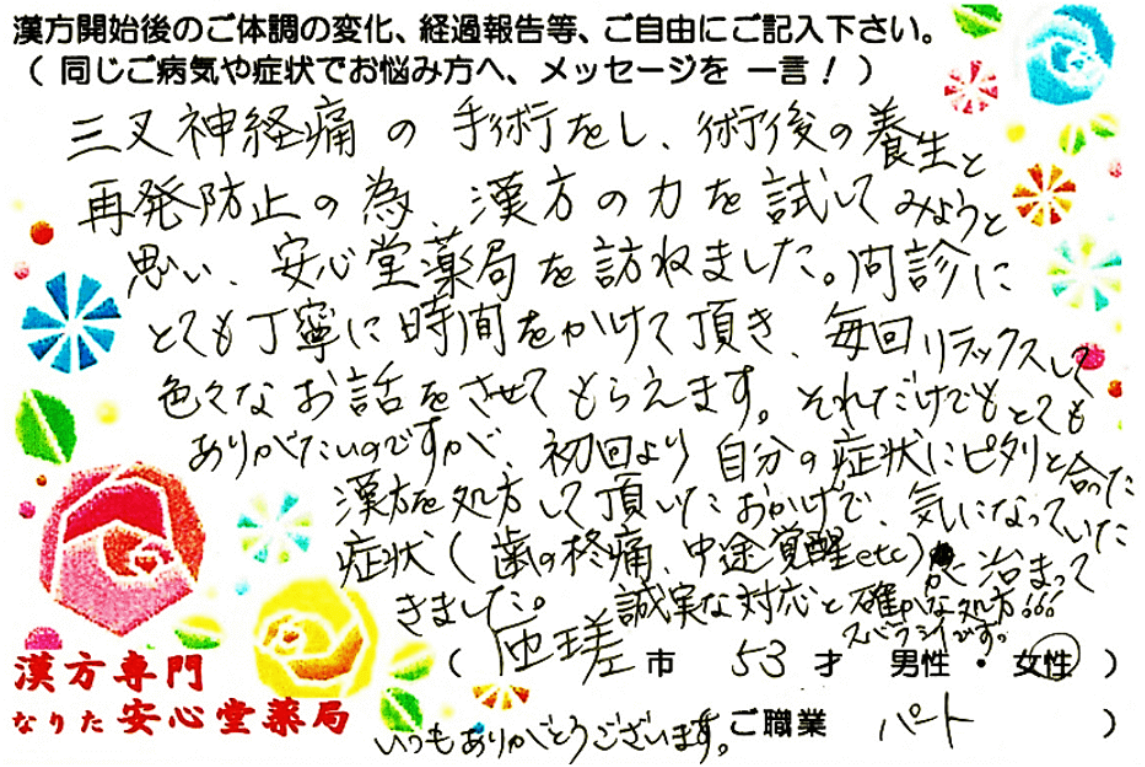 漢方開始後のご体調の変化、経過報告等、ご自由にご記入下さい。
( 同じご病気や症状でお悩み方へ、メッセージを 一言！ )
三叉神経痛の手術をし、術後の養生と
再発防止の為、漢方の力を試してみようと
思い、安心堂薬局を訪ねました。問診に
とても丁寧に時間をかけて頂き、毎回リラックスして
色々なお話をさせてもらえます。それだけでもとても
ありがたいのですが、初回より自分の症状にピタリと合った
漢方を処方して頂いたおかげで、気になっていた
症状(歯の疼痛、中途覚醒etc)が治まって
きました。誠実な対応と確かな処方!!!
スバラシイです。
( 匝瑳市 53才 男性・女性 )
漢方専門
なりた安心堂薬局
ご職業 パート )
いつもありがとうございます。